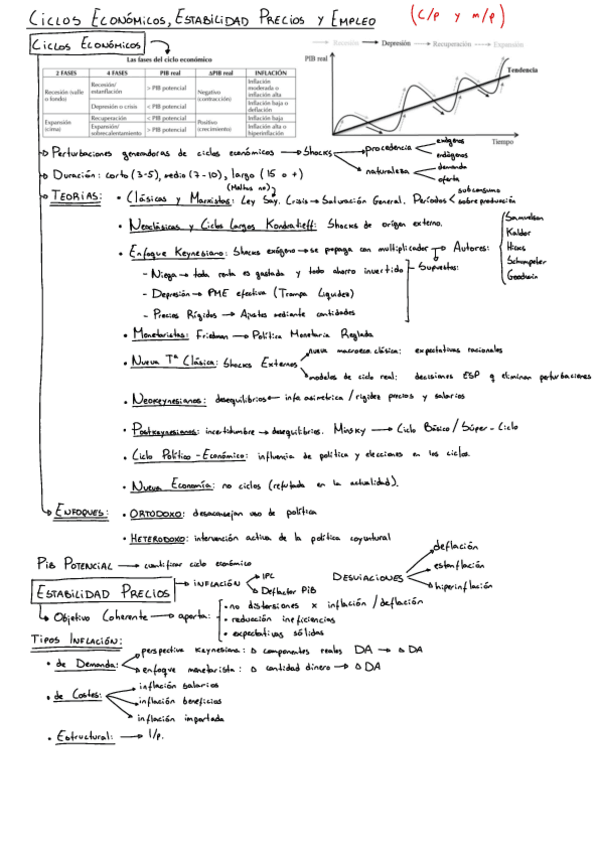 CICLOS ECONÓMICOS, ESTABILIDAD PRECIOS Y EMPLEO (C/p y m/p)
CICLOS ECONÓMICOS
Las fases del ciclo económico
2 FASES 4 FASES PIB real ΔPIB real INFLACIÓN
Recesión (valle o fondo) Recesión/estanflación > PIB potencial Negativo (contracción) Inflación moderada o inflación alta
Depresión o crisis < PIB potencial Inflación baja o deflación
Expansión (cima) Recuperación < PIB potencial Positivo (crecimiento) Inflación baja
Expansión/sobrecalentamiento > PIB potencial Inflación alta o hiperinflación
Recesión Depresión Recuperación Expansión
PIB real
Tendencia
Tiempo
Perturbaciones generadoras de ciclos económicos → Shocks
procedencia exógenos endógenos
naturaleza demanda oferta
Duración: corto (3-5), medio (7-10), largo (15 o +)
TEORÍAS:
(Malthus no)
• Clásicos y Marxistas: Ley Say. Crisis → Saturación General. Períodos subconsumo sobreproducción
• Neoclásicos y Ciclos Largos Kondratieff: Shocks de origen externo.
• Enfoque Keynesiano: Shocks exógeno → se propaga con multiplicador → Autores:
Samuelson
Kaldor
Hicks
Schumpeter
Goodwin
- Niega → toda renta es gastada y todo ahorro invertido
Supuestos:
- Depresión → PME efectiva (Trampa Liquidez)
- Precios Rígidos → Ajustes mediante cantidades
• Monetaristas: Friedman → Política Monetaria Reglada
• Nueva Tª Clásica: Shocks Externos
nueva macroeco clásica: expectativas racionales
modelos de ciclo real: decisiones ESP q eliminan perturbaciones
• Neokeynesianos: desequilibrios ← info asimétrica / rigidez precios y salarios
• Postkeynesianos: incertidumbre → desequilibrios. Minsky → Ciclo Básico / Súper-Ciclo
• Ciclo Político-Económico: influencia de política y elecciones en los ciclos.
• Nueva Economía: no ciclos (refutada en la actualidad).
ENFOQUES:
• ORTODOXO: desaconsejan uso de política
• HETERODOXO: intervención activa de la política coyuntural
PIB POTENCIAL → cuantificar ciclo económico
ESTABILIDAD PRECIOS
→ INFLACIÓN IPC Deflactor PIB
DESVIACIONES deflación estanflación hiperinflación
Objetivo Coherente → aporta:
• no distorsiones x inflación / deflación
• reducción ineficiencias
• expectativas sólidas
TIPOS INFLACIÓN:
• de Demanda:
perspectiva Keynesiana: Δ componentes reales DA → Δ DA
enfoque monetarista: Δ cantidad dinero → Δ DA
• de Costes:
inflación salarios
inflación beneficios
inflación importada
• Estructural: → l/p.